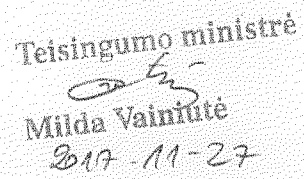 Teisingumo ministrė
Milda Vainiutė
2017-11-27